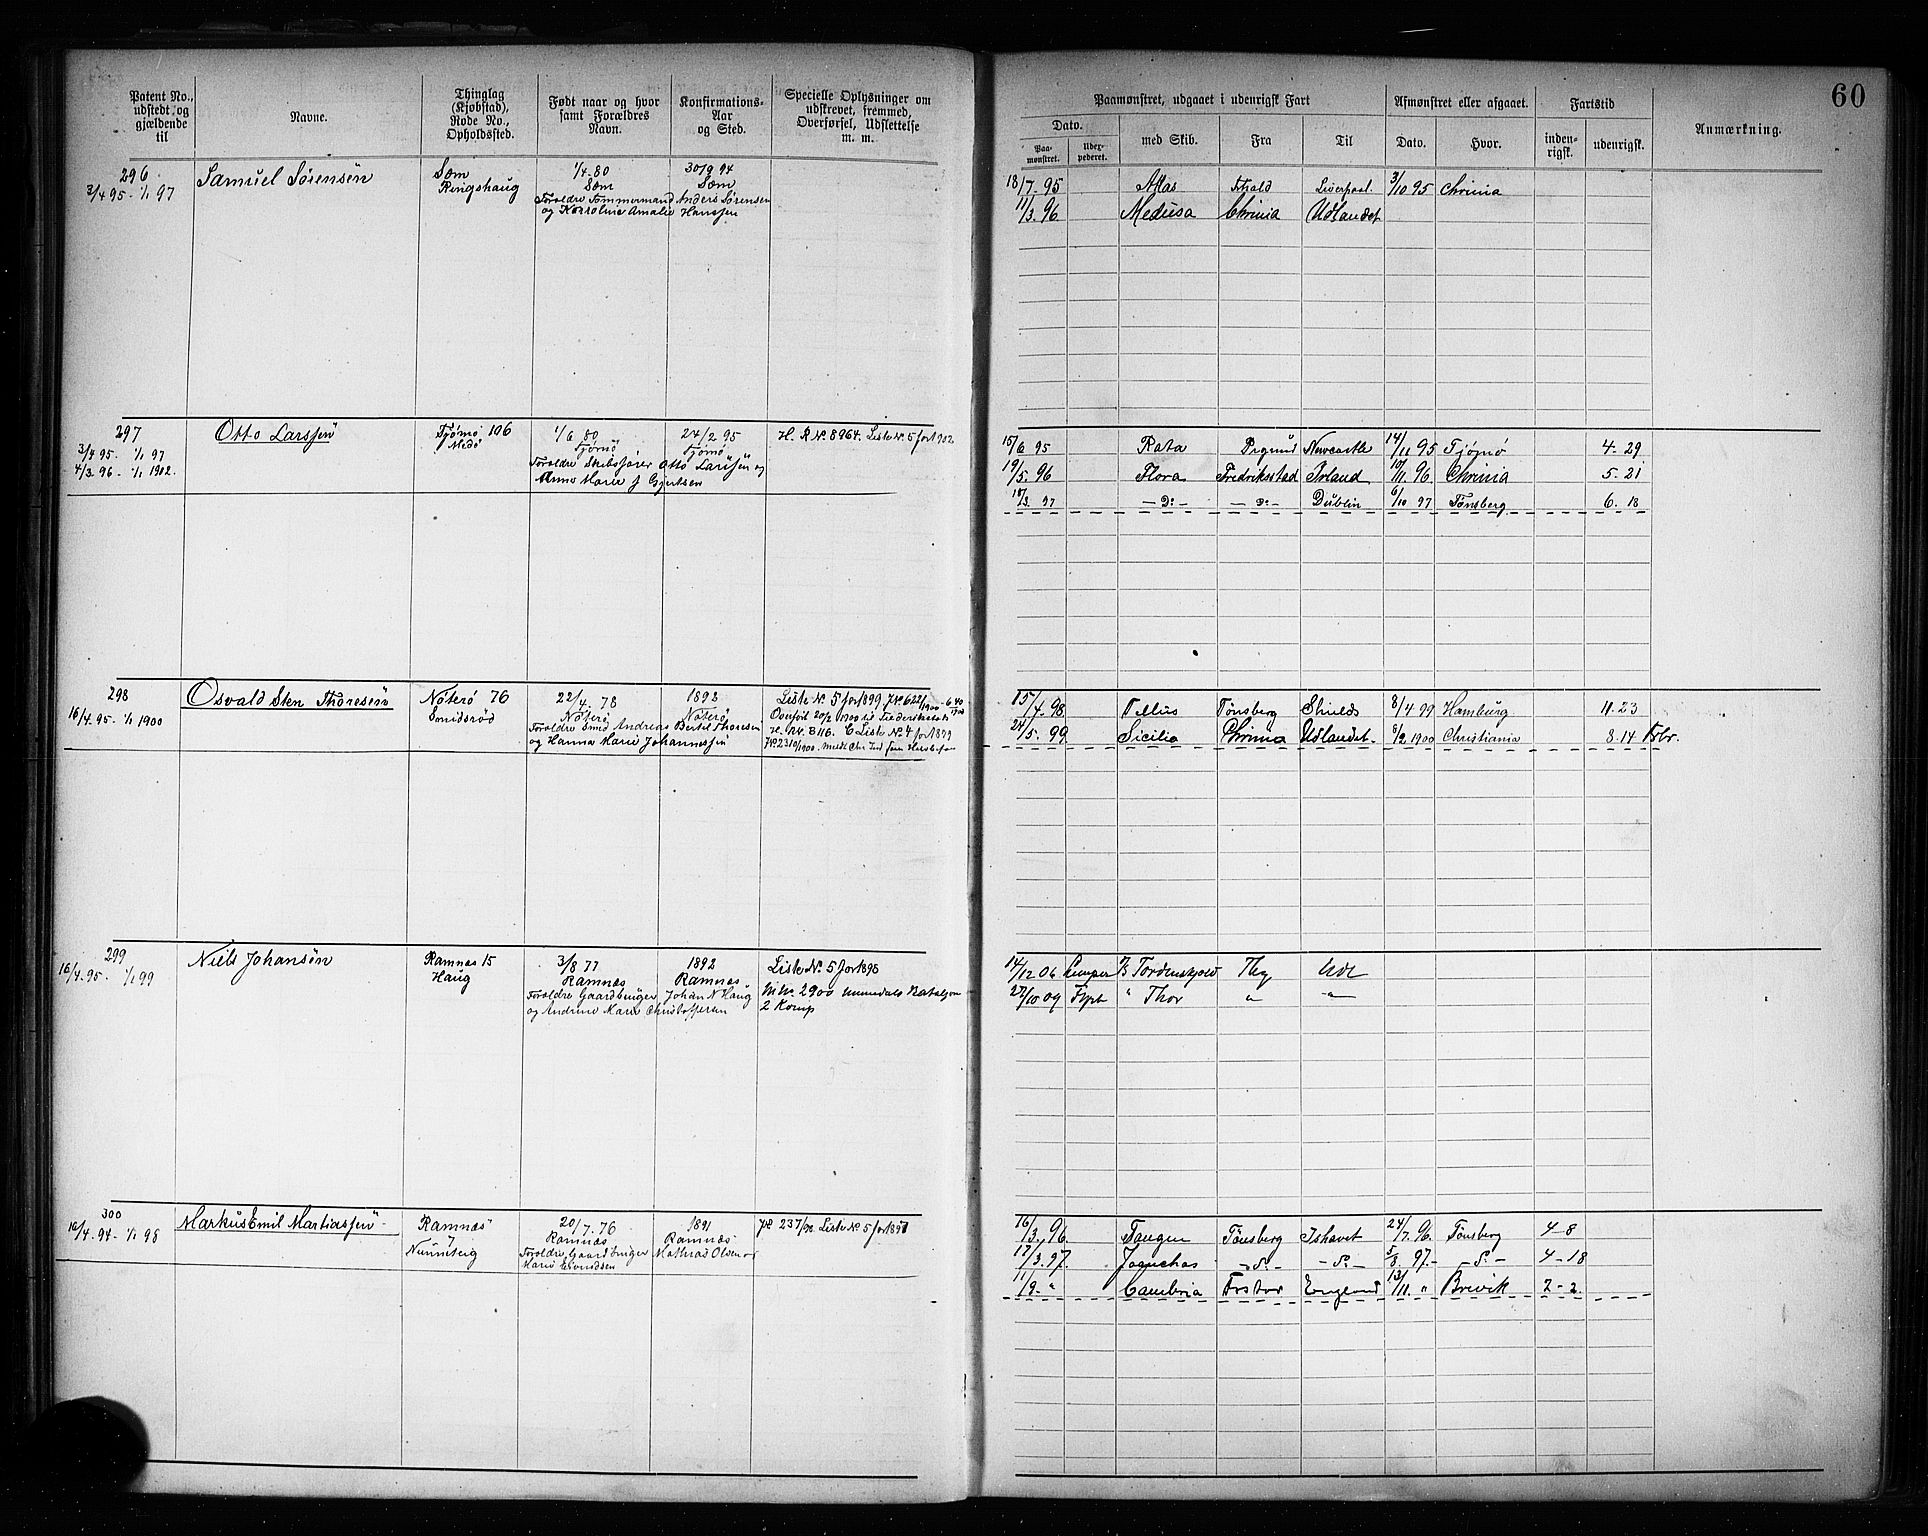 60
Patent No., udstedt og gjældende til
Navne.
Thinglag (Kjøbstad), Rode No., Opholdssted.
Født naar og hvor samt Forældres Navn.
Konfirmations-Aar og Sted.
Specielle Oplysninger om udskrevet, fremmed, Overførsel, Udslettelse m. m.
Paamønstret, udgaaet i udenrigsk Fart
Afmønstret eller afgaaet.
Fartstid
Anmærkning.
Dato.
Paa-mønstret.
Udex-pederet.
med Skib.
Fra
Til
Dato.
Hvor.
inden-rigsk.
udenrigsk.
296
3/4 95 - 1/1 97
Samuel Sørensen
Sæm
Ringshaug
1/4 - 80
Sæm
30/9 94
Sæm
Forældre Tømmermand Anders Sørensen
og Karoline Amalie Hansen
18/7 - 95 Atlas Liverpool 3/10 95 Chrinia
11/3 96 Medusa Chrinia Udlandet
297
3/4 95 - 1/1 97
4/3 96 - 1/1 1902
Otto Larssen
Tjømø 106
Medø
1/6 80
Tjømø
24/2 95
Tjømø
Forældre Skibsfører Otto Larssen og
Anna Marie f Gjertsen
H. R No. 8964. Liste No. 5 for 1902
15/6 95 Rata Newcastle 14/11 95 Tjømø 4 - 29
19/5 96 Flora Fredriksstad Irland 10/11 96 Chrinia 5 - 21
18/3 97 - Do - - Do - Dublin 6/10 97 Tønsberg 6 - 18
298
16/4 95 - 1/1 1900
Osvald Sten Thoresen
Nøterø 76
Smidsrød
22/4 - 78
Nøterø
1893
Nøterø
Forældre Smed Andreas Bertel Thoresen
og Hanna Marie Johannessen
Liste No. 5 for 1899
15/4 - 98 Tellus Tønsberg Shields 8/4 99 Hamburg 11 - 23
24/5 99 Sicilia Chrinia Udlandet 8/2 1900 Christiania 8 - 14
299
16/4 - 95 - 1/1 99
Niels Johansen
Ramnæs 15
Haug
3/8 77
Ramnæs
1892
Ramnæs
Forældre Gaardbruger Johan N Haug
og Andrine Marie Christoffersen
Liste No. 5 for 1898
No. 2900 Numedals Bataljon
2 Komp
14/12 06 Tordenskjold Tbg Udl
27/10 09 " Thor " "
300
16/4 - 94 - 1/1 98
Markus Emil Martiassen
Ramnæs
7
20/7 - 76
Ramnæs
1891
Ramnæs
Forældre Gaardbruger Mathias Olsen og
Liste No. 5 for 1897
16/3 96 Haugen Tønsberg Ishavet 24/7 96 Tønsberg 4 - 8
17/3 97 - do - - do - 5/8 97 - do - 4 - 18
11/9 - " Cambria England 13/11 " Brevik 2 - 2